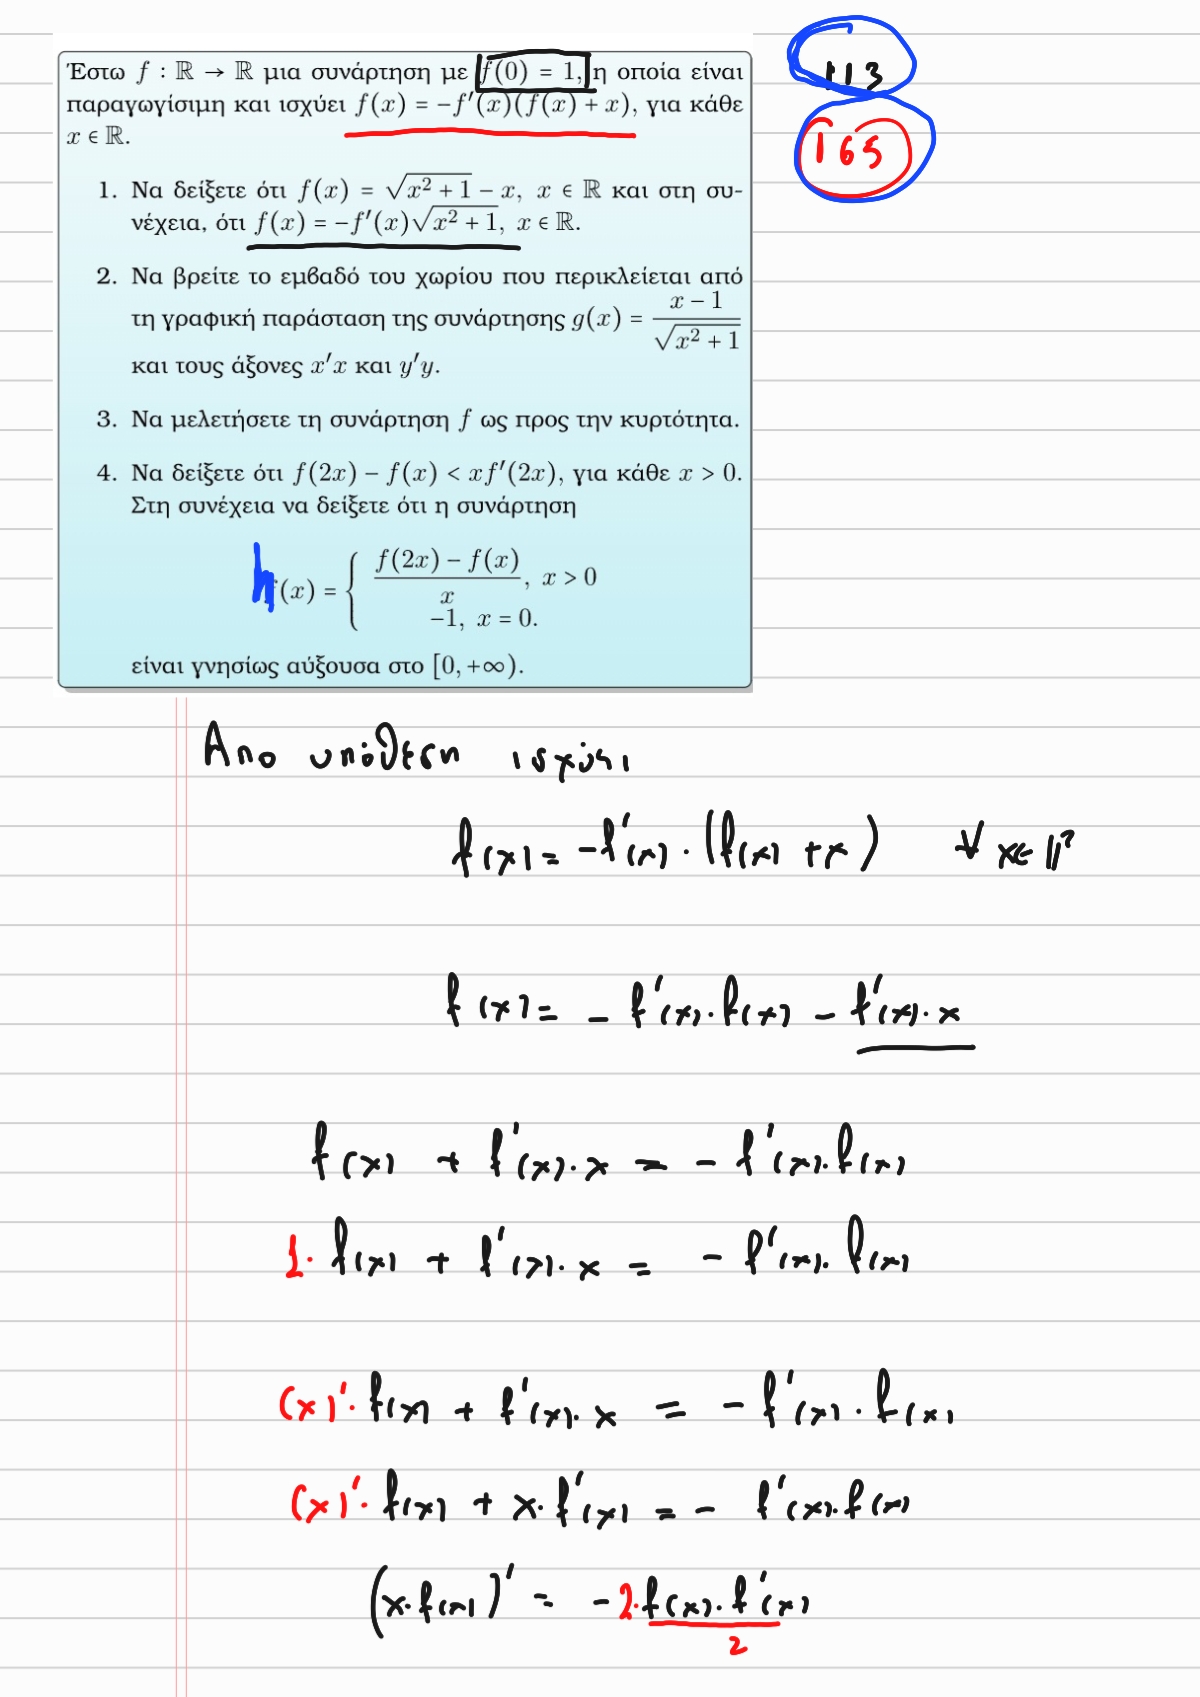 Έστω f : ℝ → ℝ μια συνάρτηση με f(0) = 1, η οποία είναι
παραγωγίσιμη και ισχύει f(x) = −f′(x)(f(x) + x), για κάθε
x ∈ ℝ.
113
165
1. Να δείξετε ότι f(x) = √(x² + 1) − x, x ∈ ℝ και στη συ-
νέχεια, ότι f(x) = −f′(x)√(x² + 1), x ∈ ℝ.
2. Να βρείτε το εμβαδό του χωρίου που περικλείεται από
τη γραφική παράσταση της συνάρτησης g(x) = (x − 1)/√(x² + 1)
και τους άξονες x′x και y′y.
3. Να μελετήσετε τη συνάρτηση f ως προς την κυρτότητα.
4. Να δείξετε ότι f(2x) − f(x) < xf′(2x), για κάθε x > 0.
Στη συνέχεια να δείξετε ότι η συνάρτηση
h(x) = { (f(2x) − f(x))/x, x > 0
−1, x = 0.
είναι γνησίως αύξουσα στο [0, +∞).
Απο υπόθεση ισχύει
f(x) = −f′(x) · (f(x) + x) ∀ x∈ℝ
f(x) = − f′(x) · f(x) − f′(x) · x
f(x) + f′(x) · x = − f′(x) · f(x)
1 · f(x) + f′(x) · x = − f′(x) · f(x)
(x)′ · f(x) + f′(x) · x = − f′(x) · f(x)
(x)′ · f(x) + x · f′(x) = − f′(x) · f(x)
(x · f(x))′ = − 2 · f(x) · f′(x)
2